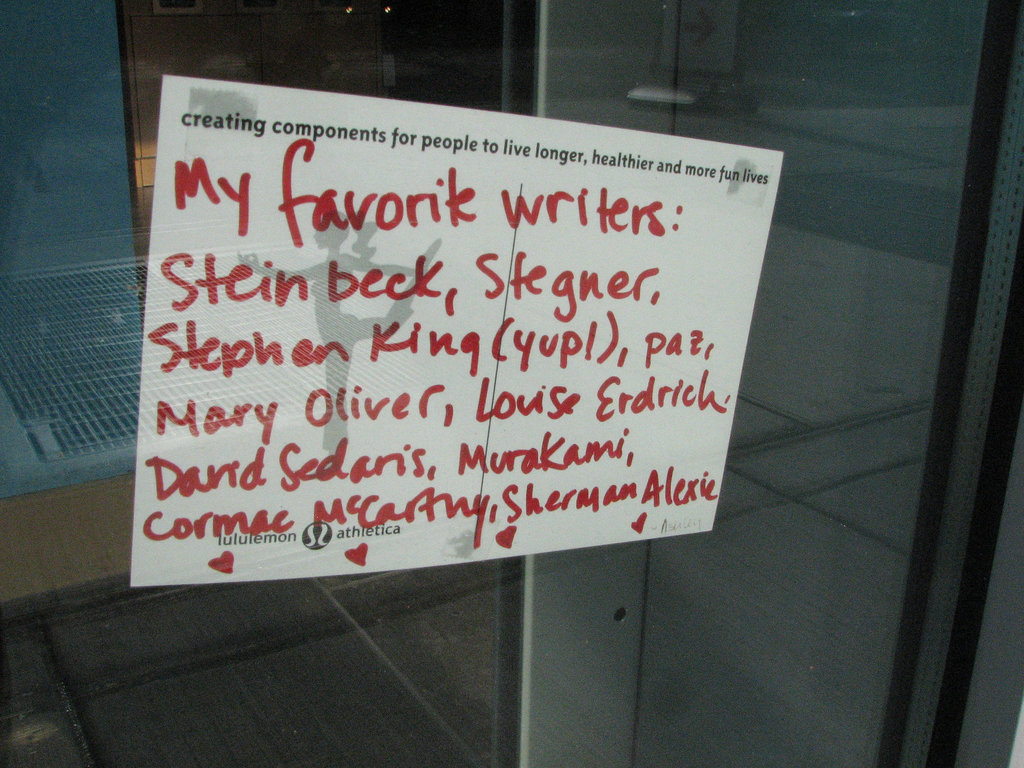 creating components for people to live longer, healthier and more fun lives
My favorite writers:
Steinbeck, Stegner,
Stephen King (yup!), paz,
Mary Oliver, Louise Erdrich,
David Sedaris, Murakami,
Cormac McCarthy, Sherman Alexie
lululemon athletica
- Ashley